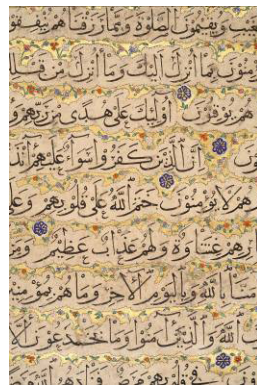 ويقيمون الصلوة ومما رزقناهم ينفقو
منون بما انزل اليك وما انزل من قبلك
هم يوقنون اولئك على هدى من ربهم و
ون ان الذين كفروا سواء عليهم ءانذ
هم لا يومنون ختم الله على قلوبهم وعلى
ارهم غشاوة ولهم عذاب عظيم ومن
منا بالله وباليوم الاخر وما هم بمومنين
ن الله والذين امنوا وما يخدعون الا